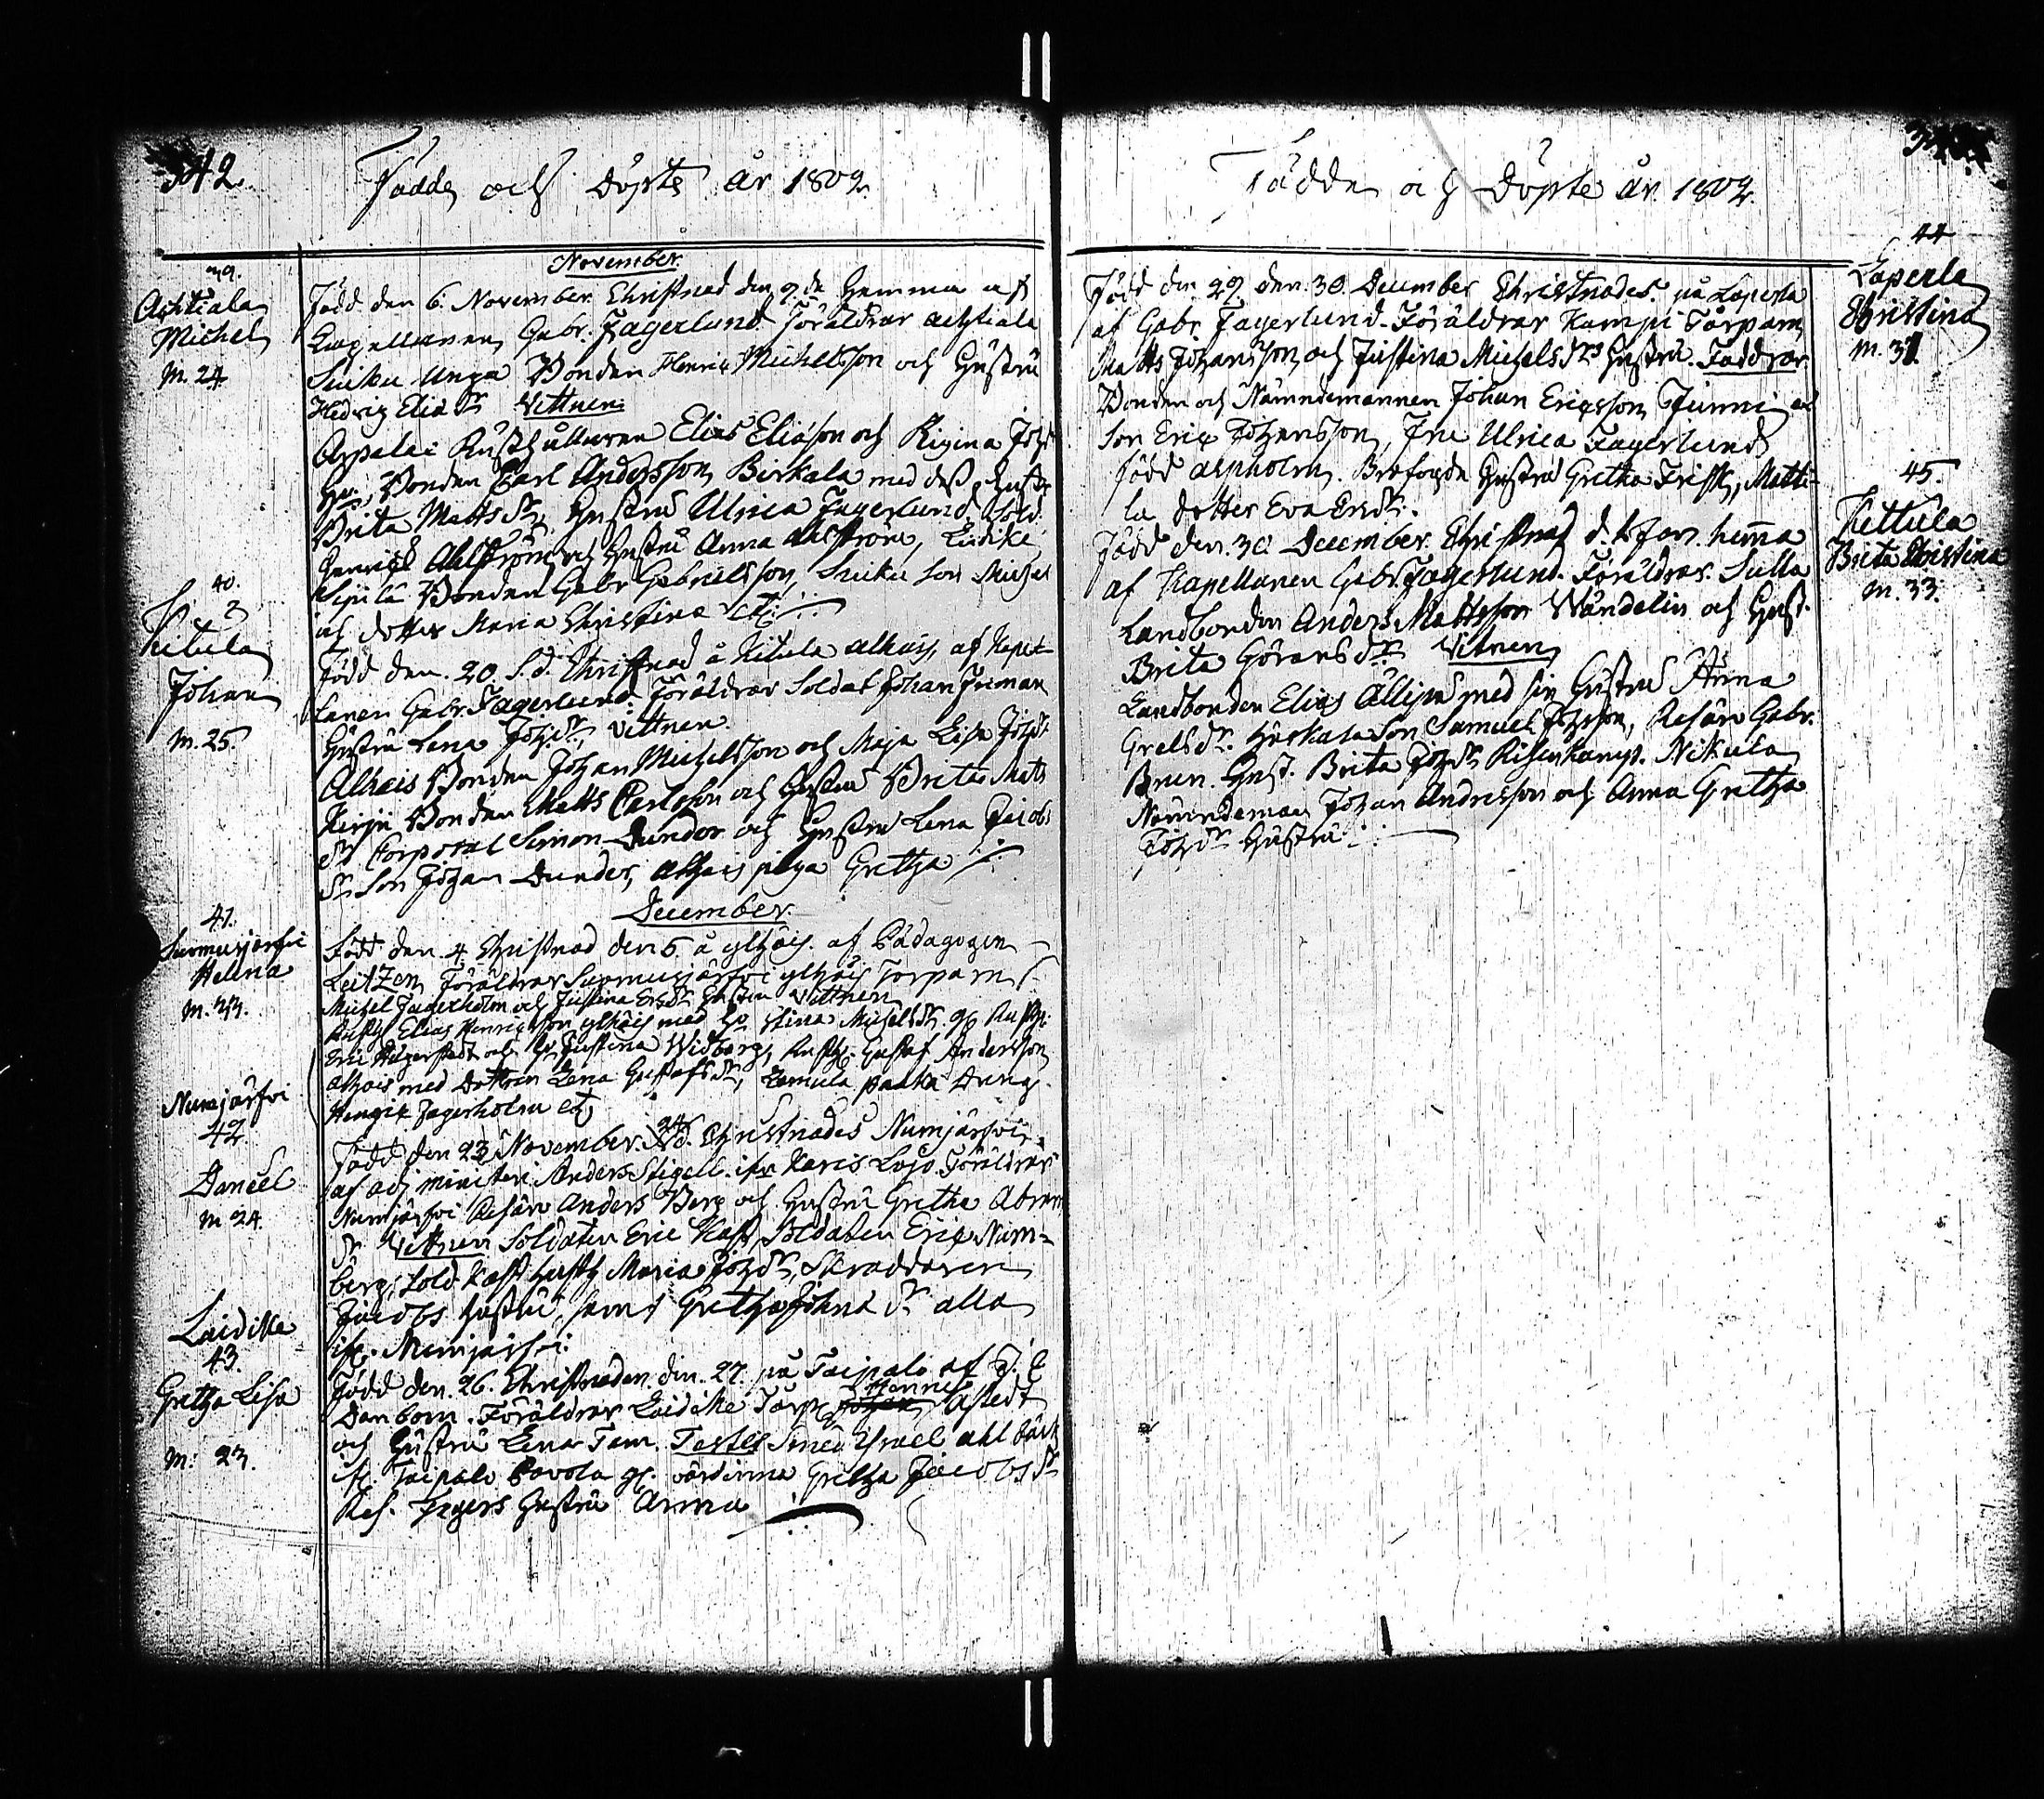 342.
Födde och Döpte år 1802.
November.
39.
Achtiala
Michel
M. 24
Född den 6. November Christnad den 7. de Hemma af
Capellanen Gabr. Fagerlund Föräldrar Achtiala
Suiku Unga Bonden Henric Michelsson och Hustru
Hedvig Elias dr Vittnen
Arpalai Rusthållaren Elias Eliasson och Regina Joh
Bonden Carl Andersson Birkala med dess hustr
Brita Matts dr, Hustru Ulrica Fagerlund Sold.
Henrich Ahlström och Hustru Anna Ahlström, Luidike
Sipilä Bonden Gabr Gabrielsson, Suiku Son Michel
och dotter Maria Christina etc.
40.
Kitula
Johan
M. 25.
Född den 20. S.d. Christnad å Kitula Alhais, af Kapel-
lanen Gabr. Fagerlund. Föräldrar Soldat Johan Friman
Hustru Lena Joh.dr, Vittnen.
Alhais Bonden Johan Michelsson och Maja Lisa Johdr
Kirju Bonden Matts Carlsson och Hustru Brita Matts
dr Corporal Simon Dunder och Hustru Lena Jacobs
dr Son Johan Dunder, Alhais piga Gretha
December.
41.
Surmusjärfvi
Helena
M. 33.
Född den 4 Christnad den 5. å ylhäis. af Pädagogen
Leitzen Föräldrar Surmusjärfvi ylhäis Torparn
Michel Fagerholm och Justina Ers dr Hustru Vittnen
Rusth Elias Henricsson ylhäis med Stina Michelsdr. Rusth.
Eric Hilgerstedt och Justina Widberg, Rusth. Gustaf Andersson
Alhais med Dottren Lena Gustafsdr, Lemula paaka Dreng.
Henric Fagerholm etc
Numjärfvi
42
Daniel
M 24.
Född den 23 November. 24 d. Christnades Numjärfvi
af adj ministeri Anders Stigell ifr Karis Lojo. Föräldrar
Numjärfvi Anders Berg och Hustru Gretha Abram
dr Vittnen Soldaten Eric Kast, Soldaten Eric Num-
berg, Sold Kast Hustr Maria Joh dr, Skraddaren
Jacobs hustru, samt Gretha Johns dr alla
ifr. Numjärfvi.
Laidike
43.
Gretha Lisa
M: 23.
Född den. 26. Christnaden den. 27. på Taipale af
Danborn. Föräldrar Laidike Torp Johan Henric
och Hustru Lena Tam. Testes Smed Israel
Taipale Pavola värdinna Gretha Jacobs dr
Hustru Anna
Födde och Döpte år. 1802.
44
Laperla
Christina
M. 31.
Född den 29 den. 30. December Christnades. på Laperla
af Gabr. Fagerlund. Föräldrar Kampi Torparn
Matts Johansson, och Justina Michelsdr Hustru. Faddrar.
Bonden och Nämndemannen Johan Ericsson Junni
Son Eric Johansson, Fru Ulrica Fagerlund
född Alpholm. Hustru Gretha Frisk, Matti-
la dotter Eva Ersdr.
45.
Kettula
Brita Christina
M. 33.
Född den. 30 December. Christnad d. 1 Jan. hema
af Kapellanen Gabr Fagerlund. Föräldrar. Sulla
Landbonden Anders Mattsson Wändelin och Hust.
Brita Görans dr Vitnen
Landbonden Elias Ällisin med sin Hustru Anna
Grelsdr. Härkala Son Samuel Johsson, Gabr.
Brun. Hust. Brita Johdr. Nikula
Nämndeman Johan Andersson och Anna Gretha
Joh dr Hustru